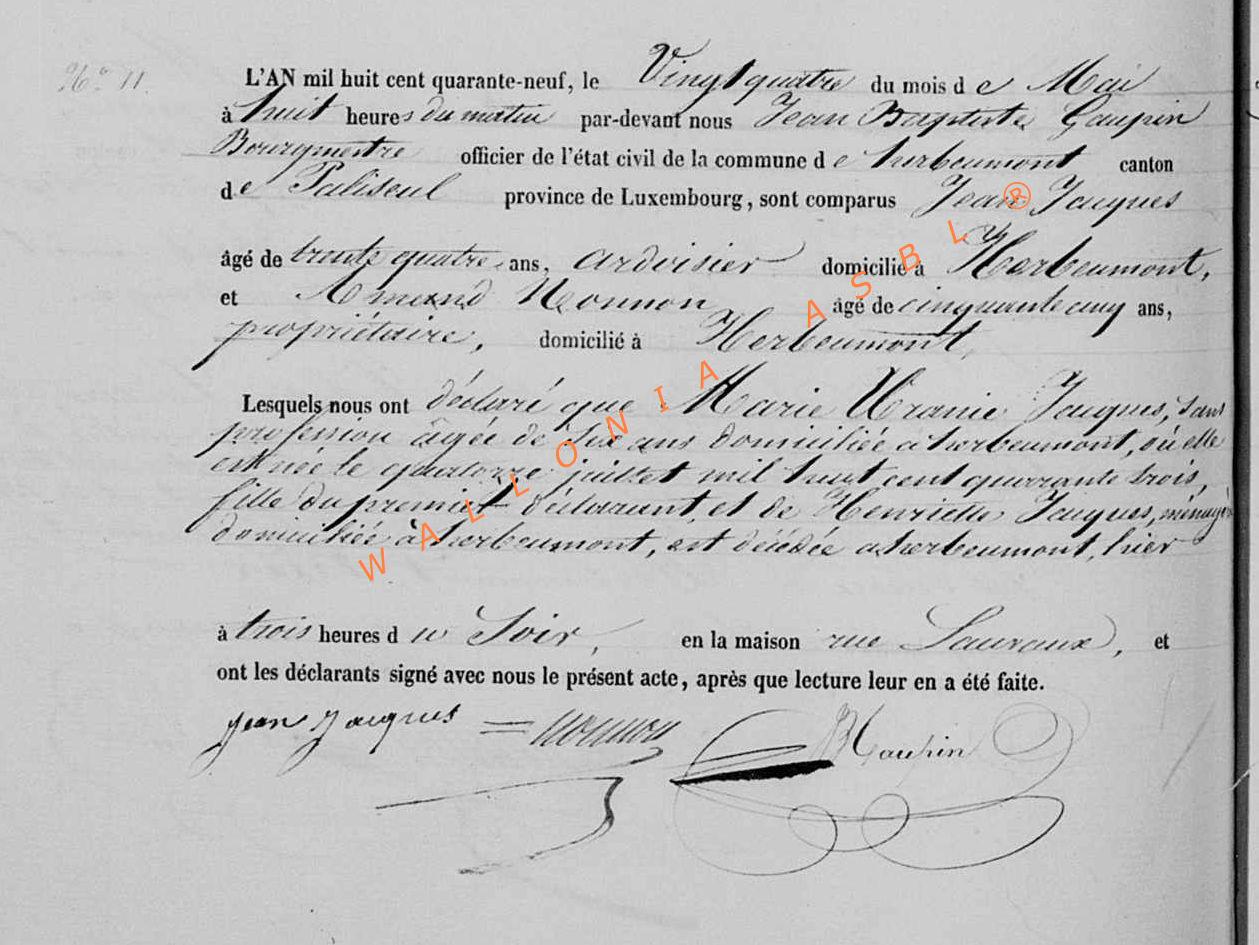 N° 11.
L'AN mil huit cent quarante-neuf, le Vingt quatre du mois de Mai
à huit heures du matin par-devant nous Jean Baptiste Gaupin
Bourgmestre officier de l'état civil de la commune de herbeumont canton
de Paliseul province de Luxembourg, sont comparus Jean Jacques
âgé de trente quatre ans, ardoisier domicilié à Herbeumont,
et Amand Nonnon âgé de cinquante cinq ans,
propriétaire, domicilié à Herbeumont,
Lesquels nous ont déclaré que Marie Uranie Jacques, sans
profession âgée de six ans domiciliée à herbeumont, où elle
est née le quatorze juillet mil huit cent quarante trois,
fille du premier déclarant, et de Henriette Jacques, ménagère
domiciliée à herbeumont, est décédée à herbeumont, hier
à trois heures du Soir, en la maison rue Lauvaux, et
ont les déclarants signé avec nous le présent acte, après que lecture leur en a été faite.
Jean Jacques = Nonnon Gaupin
WALLONIA ASBL ®